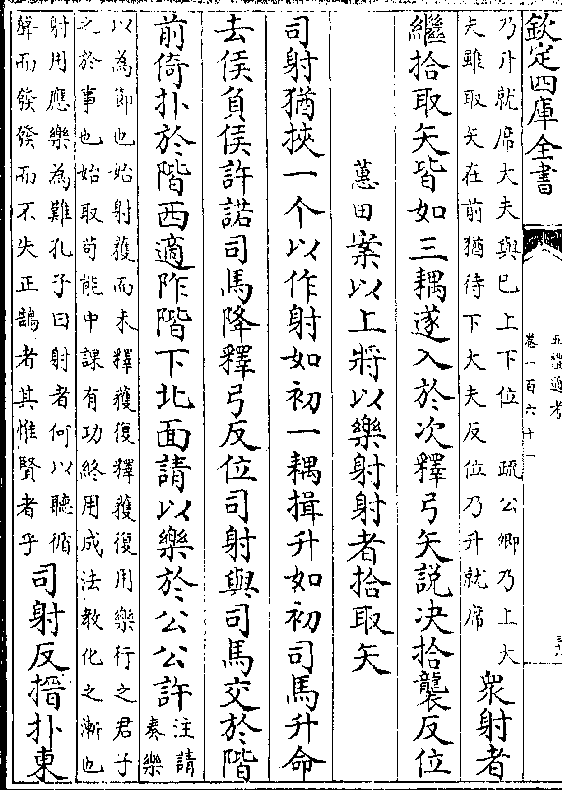 欽定四庫全書
五禮通考
卷一百六十一
乃升就席大夫與己上下位　疏公卿乃上大
夫雖取矢在前猶待下大夫反位乃升就席
衆射者
繼拾取矢皆如三耦遂入於次釋弓矢説决拾襲反位
蕙田案以上將以樂射射者拾取矢
司射猶挾一个以作射如初一耦揖升如初司馬升命
去侯負侯許諾司馬降釋弓反位司射與司馬交於階
前倚扑於階西適阼階下北面請以樂於公公許
注請
奏樂
以為節也始射獲而未釋獲復釋獲復用樂行之君子
之於事也始取苟能中課有功終用成法教化之漸也
射用應樂為難孔子曰射者何以聽循
聲而發發而不失正鵠者其惟賢者乎
司射反搢扑東